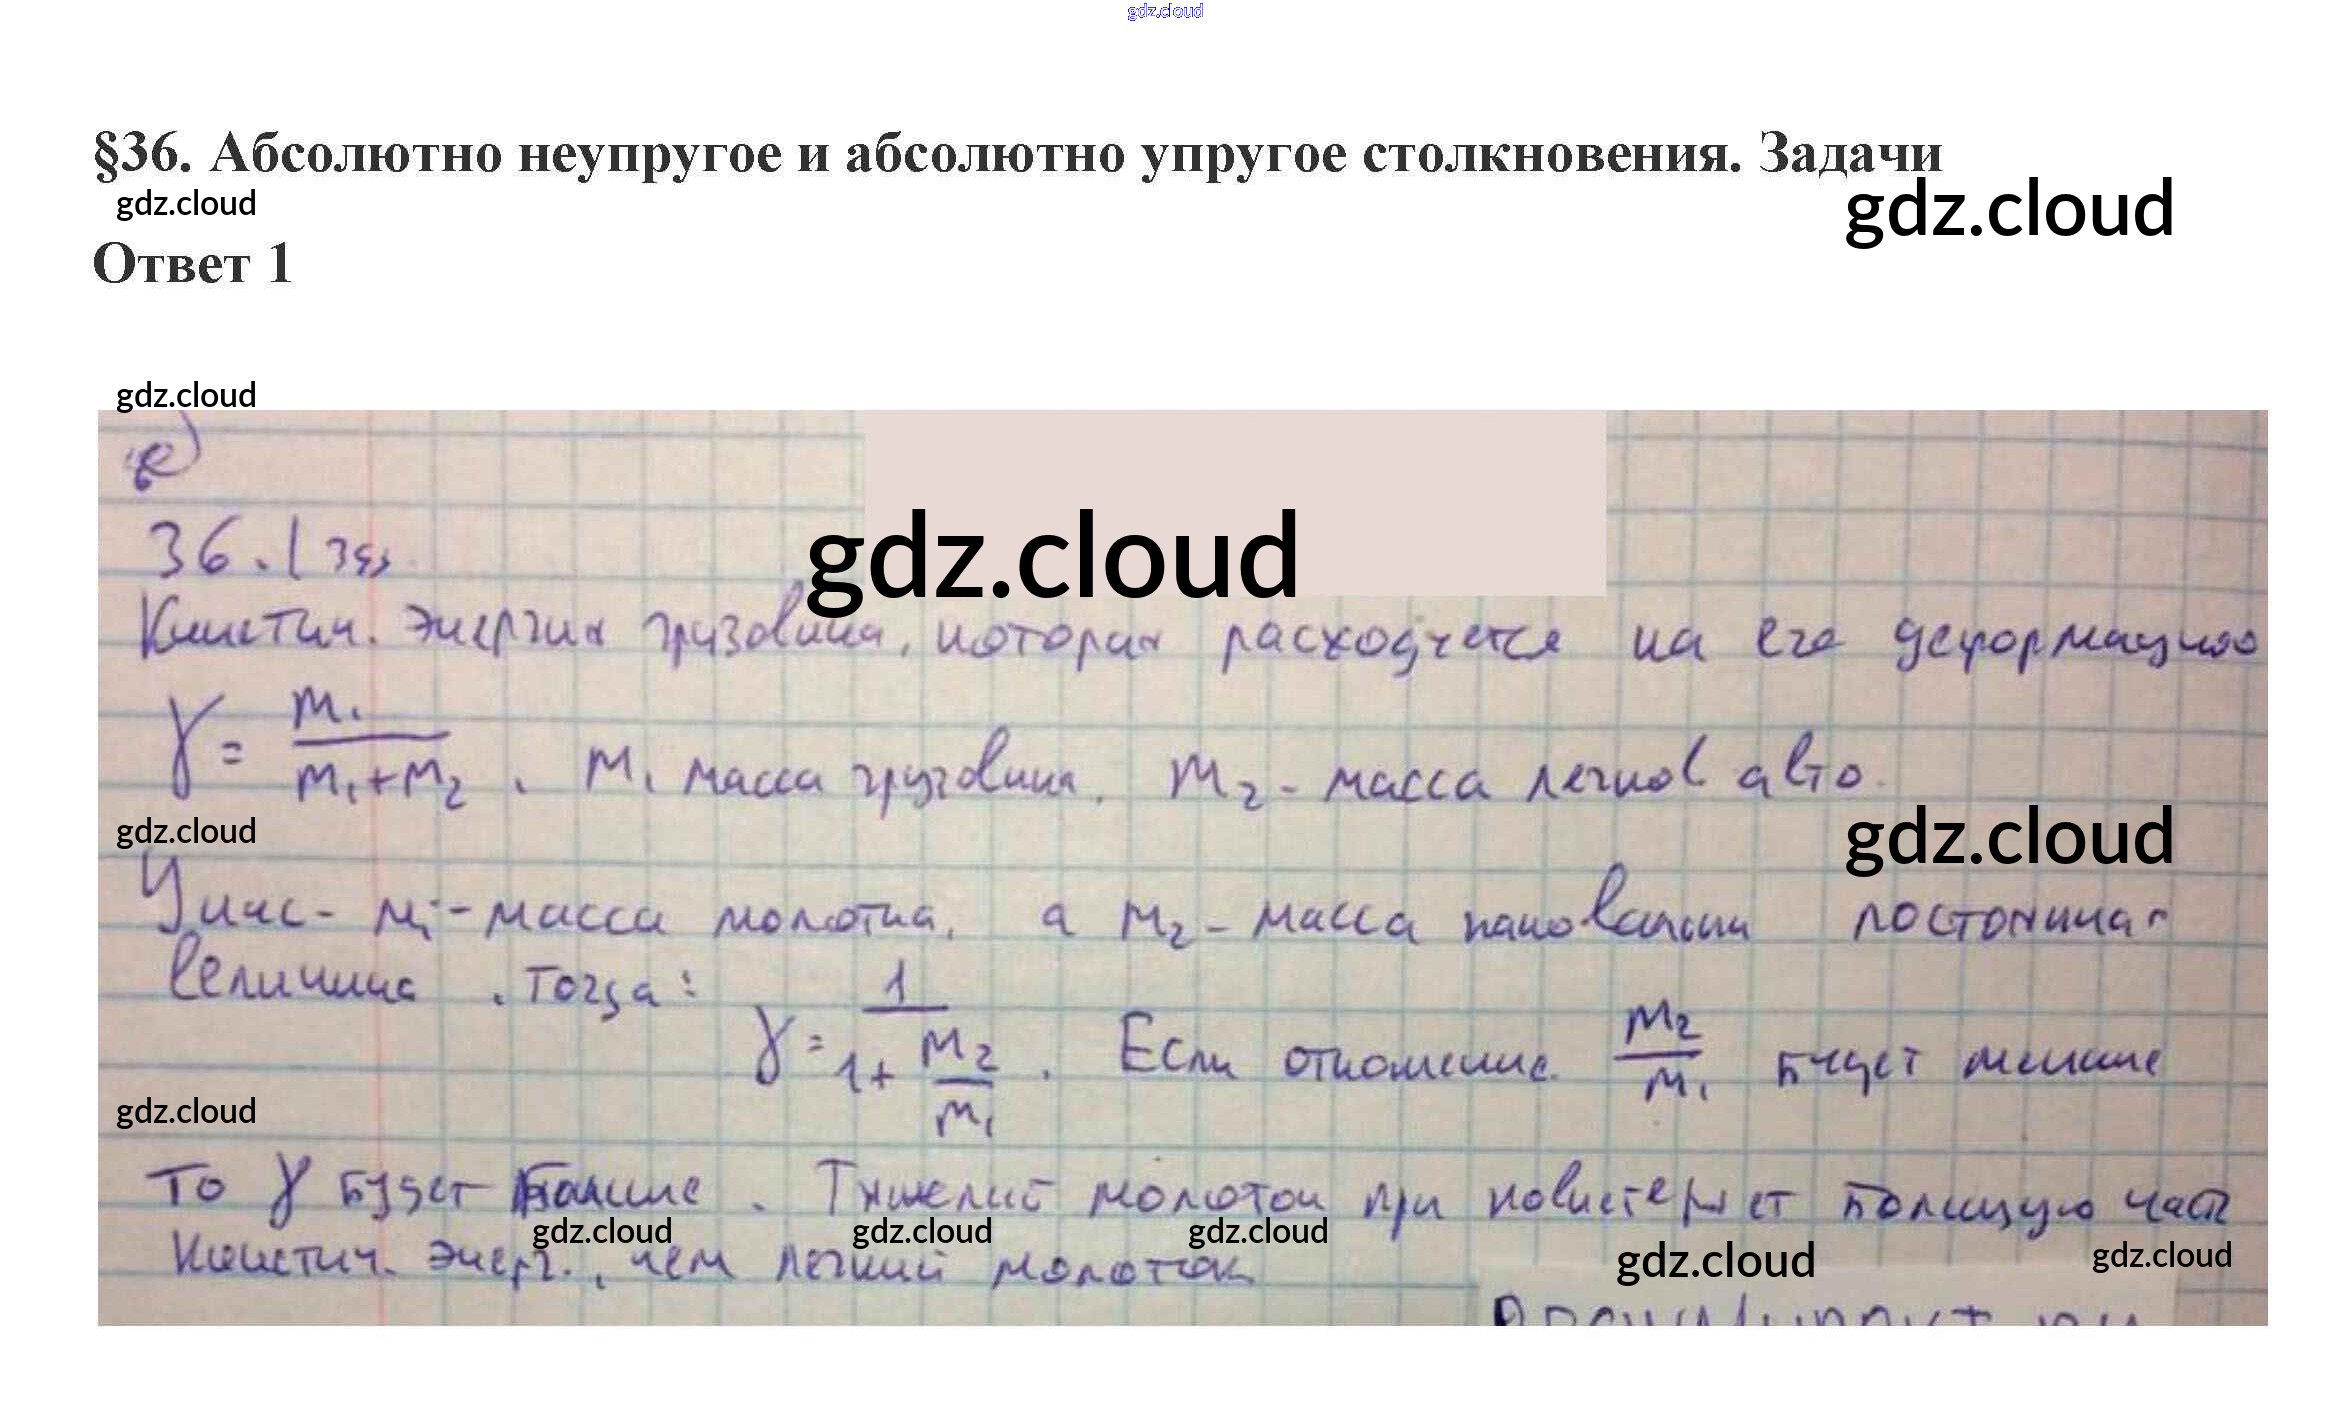 gdz.cloud
§36. Абсолютно неупругое и абсолютно упругое столкновения. Задачи
gdz.cloud
gdz.cloud
Ответ 1
gdz.cloud
36.1 зад.
gdz.cloud
Кинетич. энергия грузовика, которая расходуется на его деформацию
γ = m₁/(m₁+m₂) . m₁ масса грузовика, m₂ - масса легков авто.
gdz.cloud
gdz.cloud
У нас - m₁ - масса молотка, а m₂ - масса наковальни постоянная
величина . Тогда:
γ = 1/(1 + m₂/m₁) . Если отношение m₂/m₁ будет меньше
gdz.cloud
то γ будет больше . Тяжелий молоток при большую часть
gdz.cloud gdz.cloud gdz.cloud
кинетич. энерг., чем легкий молоток
gdz.cloud gdz.cloud